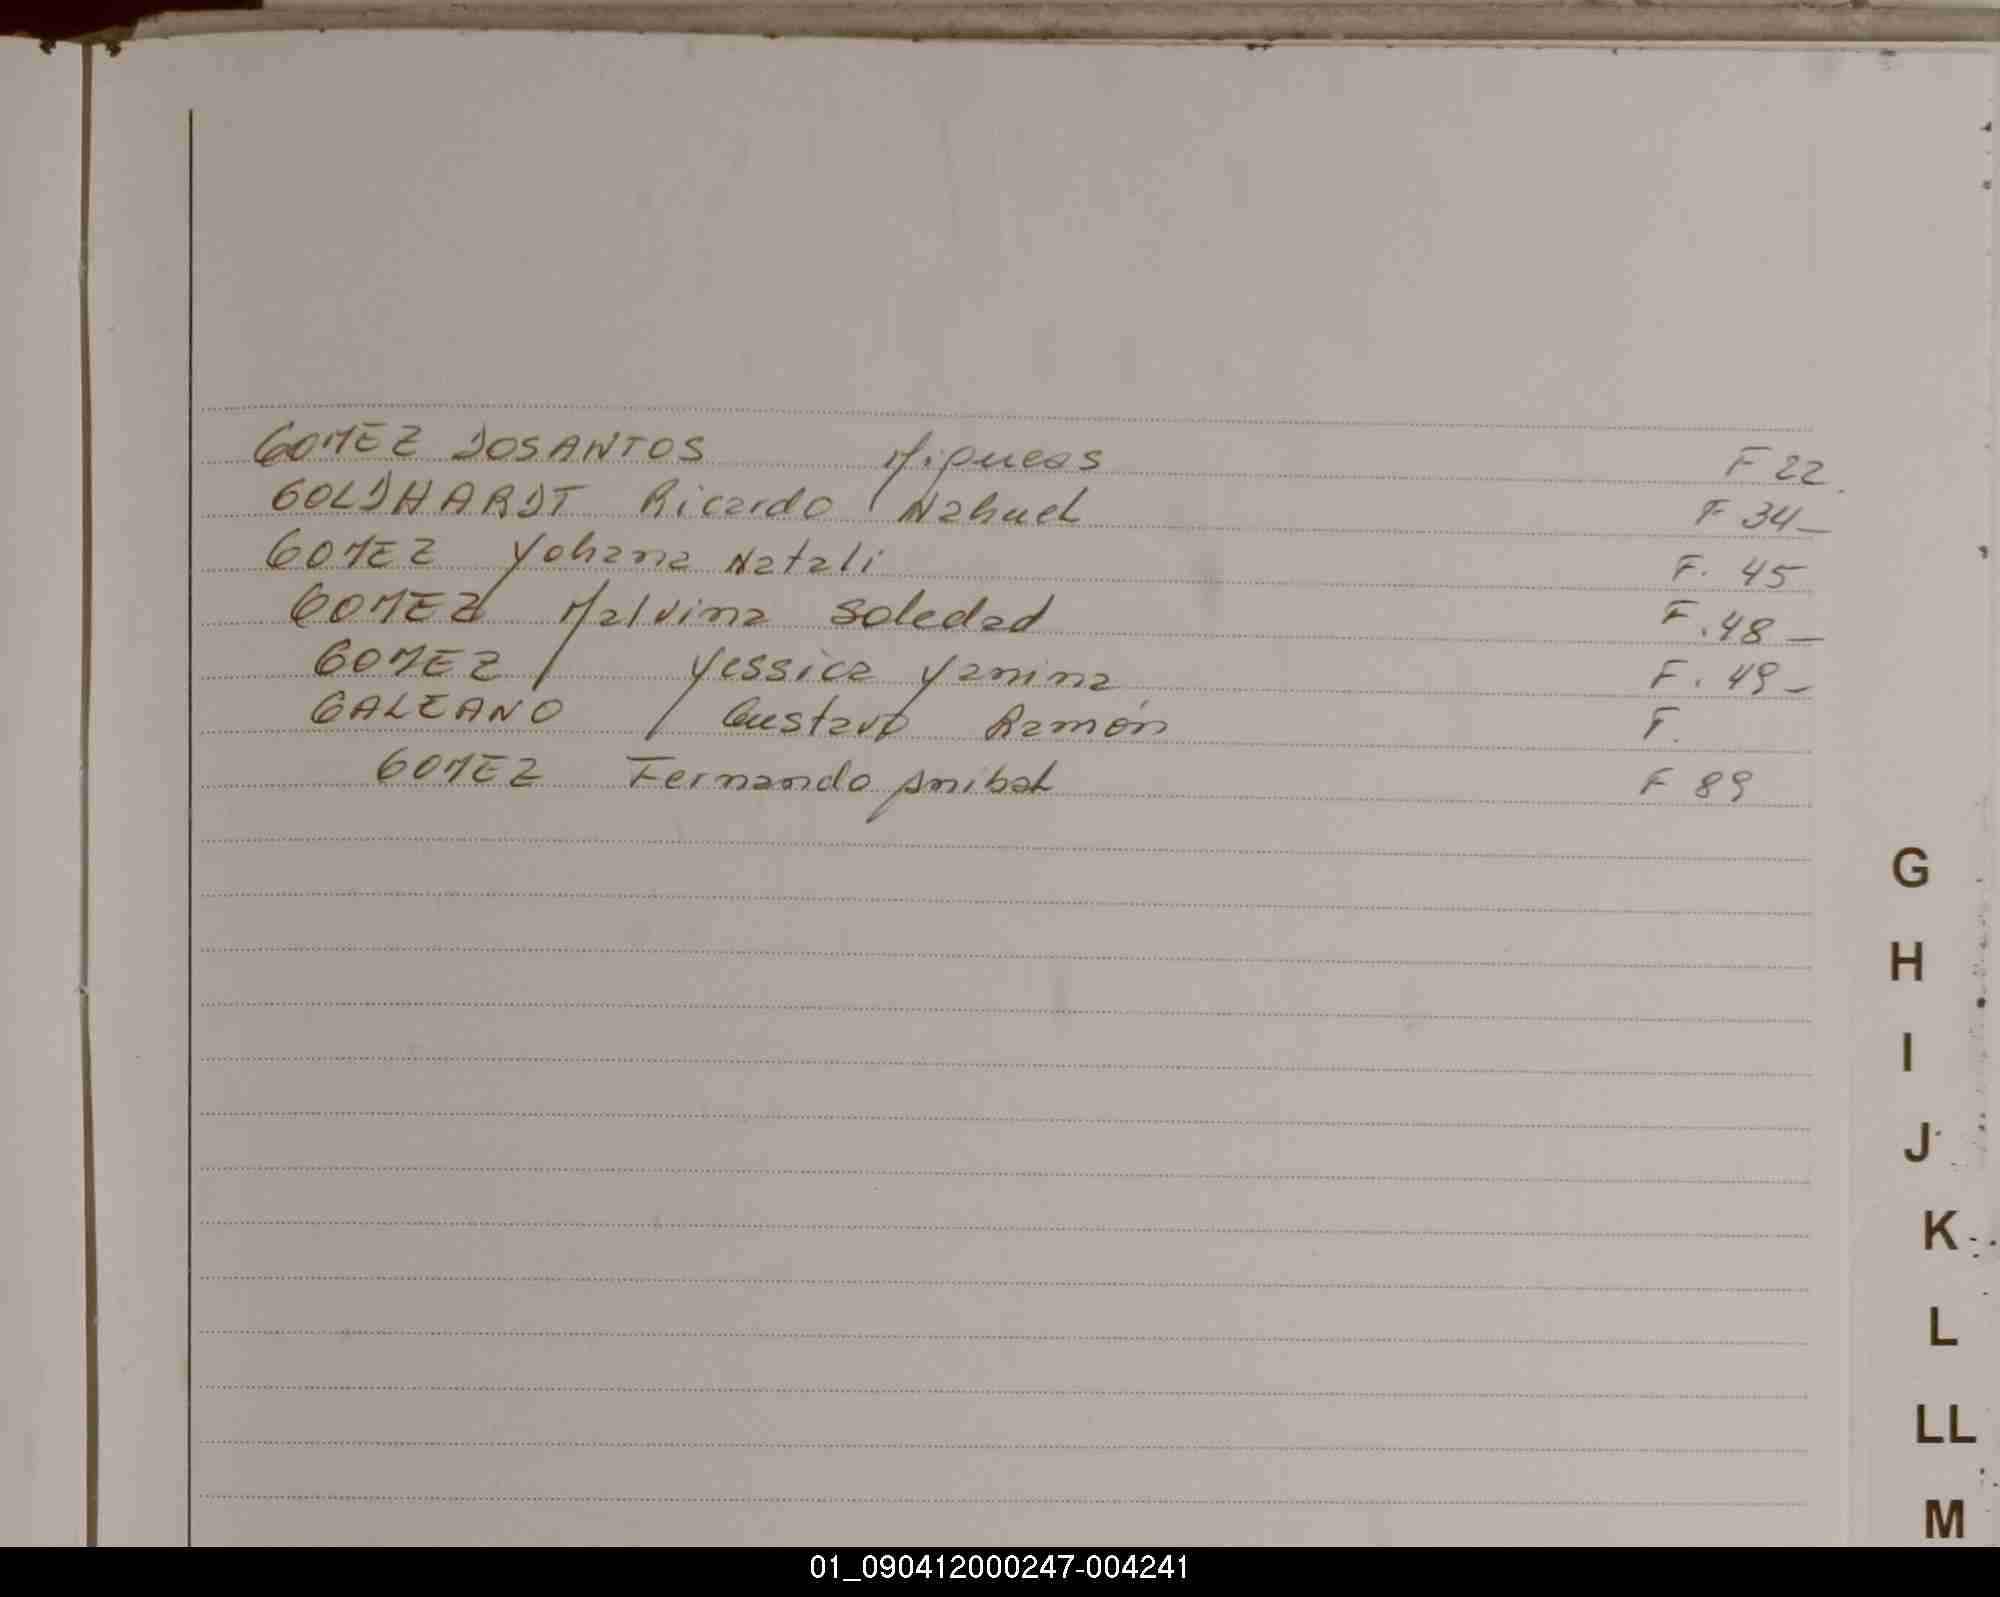 GOMEZ DOSANTOS Miqueas F 22
GOLDHARDT Ricardo Nahuel F 34-
GOMEZ Yohana Natali F. 45
GOMEZ Malvina Soledad F. 48 -
GOMEZ Yessica Yanina F. 49 -
GALEANO Gustavo Ramón F.
GOMEZ Fernando Anibal F 89
G
H
I
J
K
L
LL
M
01_090412000247-004241